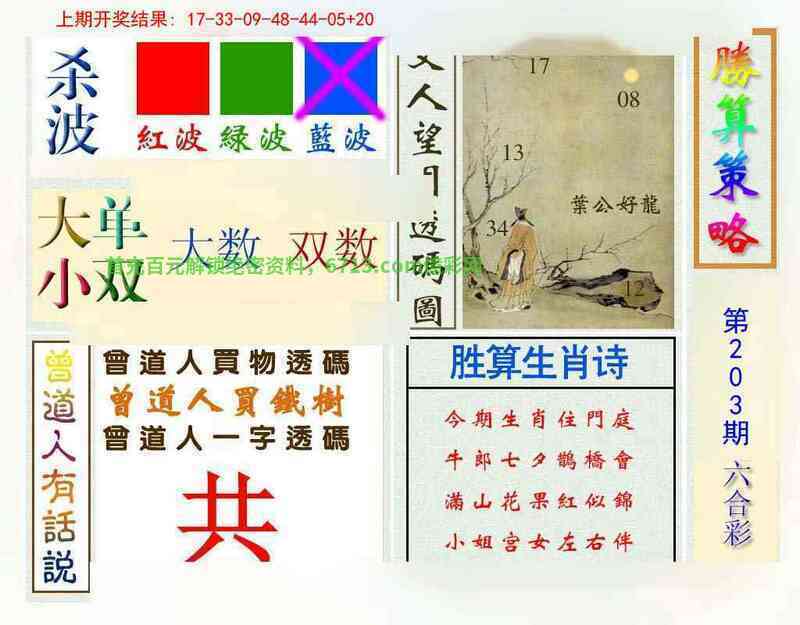 上期开奖结果: 17-33-09-48-44-05+20
杀波
紅波 緑波 藍波
大小
单双
大数 双数
人望
透碼圖
17
08
13
34
12
葉公好龍
勝算策略
第203期六合彩
曾道人有話説
曾道人買物透碼
曾道人買鐵樹
曾道人一字透碼
共
胜算生肖诗
今期生肖住門庭
牛郎七夕鹊橋會
滿山花果紅似錦
小姐宫女左右伴